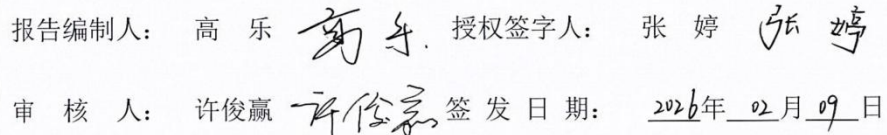 报告编制人： 高 乐 高乐 授权签字人： 张 婷 张婷
审 核 人： 许俊赢 许俊赢 签 发 日 期： 2026年 02月 09日